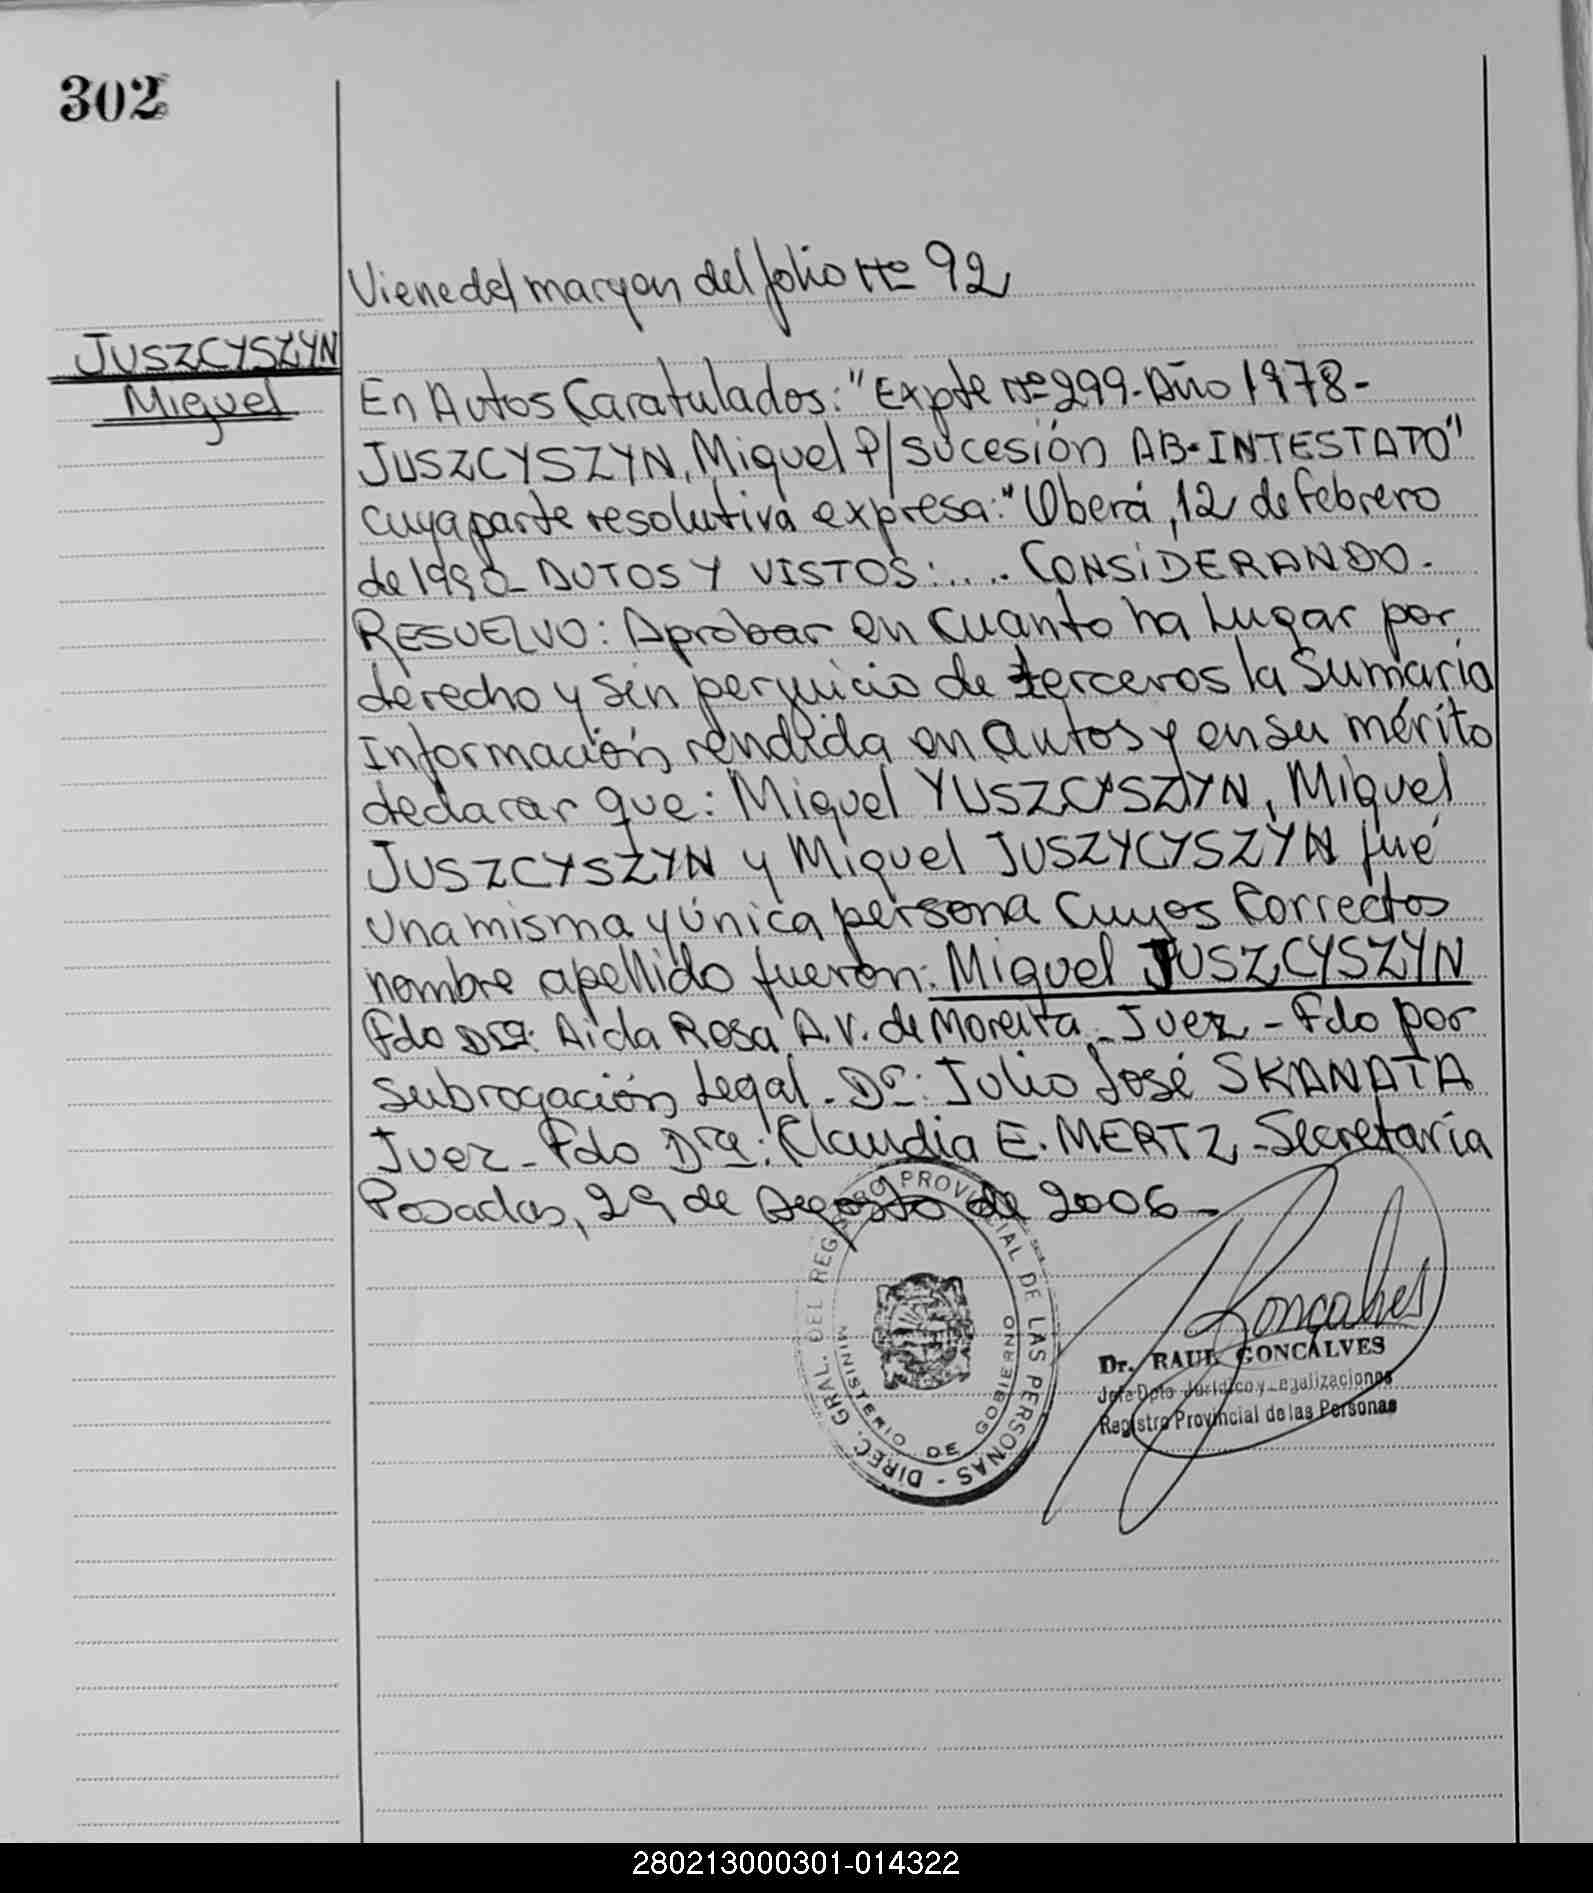 302
Viene del margen del folio Nº 92
JUSZCYSZYN
Miguel
En Autos Caratulados: "Expte Nº 299-Año 1978-
JUSZCYSZYN, Miguel P/sucesión AB-INTESTATO"
cuya parte resolutiva expresa: "Oberá, 12 de febrero
de 1990- AUTOS Y VISTOS:.... CONSIDERANDO.
RESUELVO: Aprobar en cuanto ha Lugar por
derecho y sin perjuicio de terceros la Sumaria
Información rendida en autos y en su mérito
declarar que: Miguel YUSZCYSZYN, Miguel
JUSZCYSZYN y Miguel JUSZYCYSZYN fué
una misma y única persona cuyos correctos
nombre apellido fueron: Miguel JUSZCYSZYN
Fdo Dra: Aida Rosa A.V. de Moreira- Juez- Fdo por
subrogación Legal- Dr: Julio José SKANATA
Juez- Fdo Dra: Claudia E. MERTZ- Secretaría
Posadas, 29 de Agosto de 2006-
DIREC. GRAL. DEL REGISTRO PROVINCIAL DE LAS PERSONAS -
MINISTERIO DE GOBIERNO
Goncalves
Dr. RAUL GONCALVES
Jefe Dpto Jurídico y Legalizaciones
Registro Provincial de las Personas
280213000301-014322